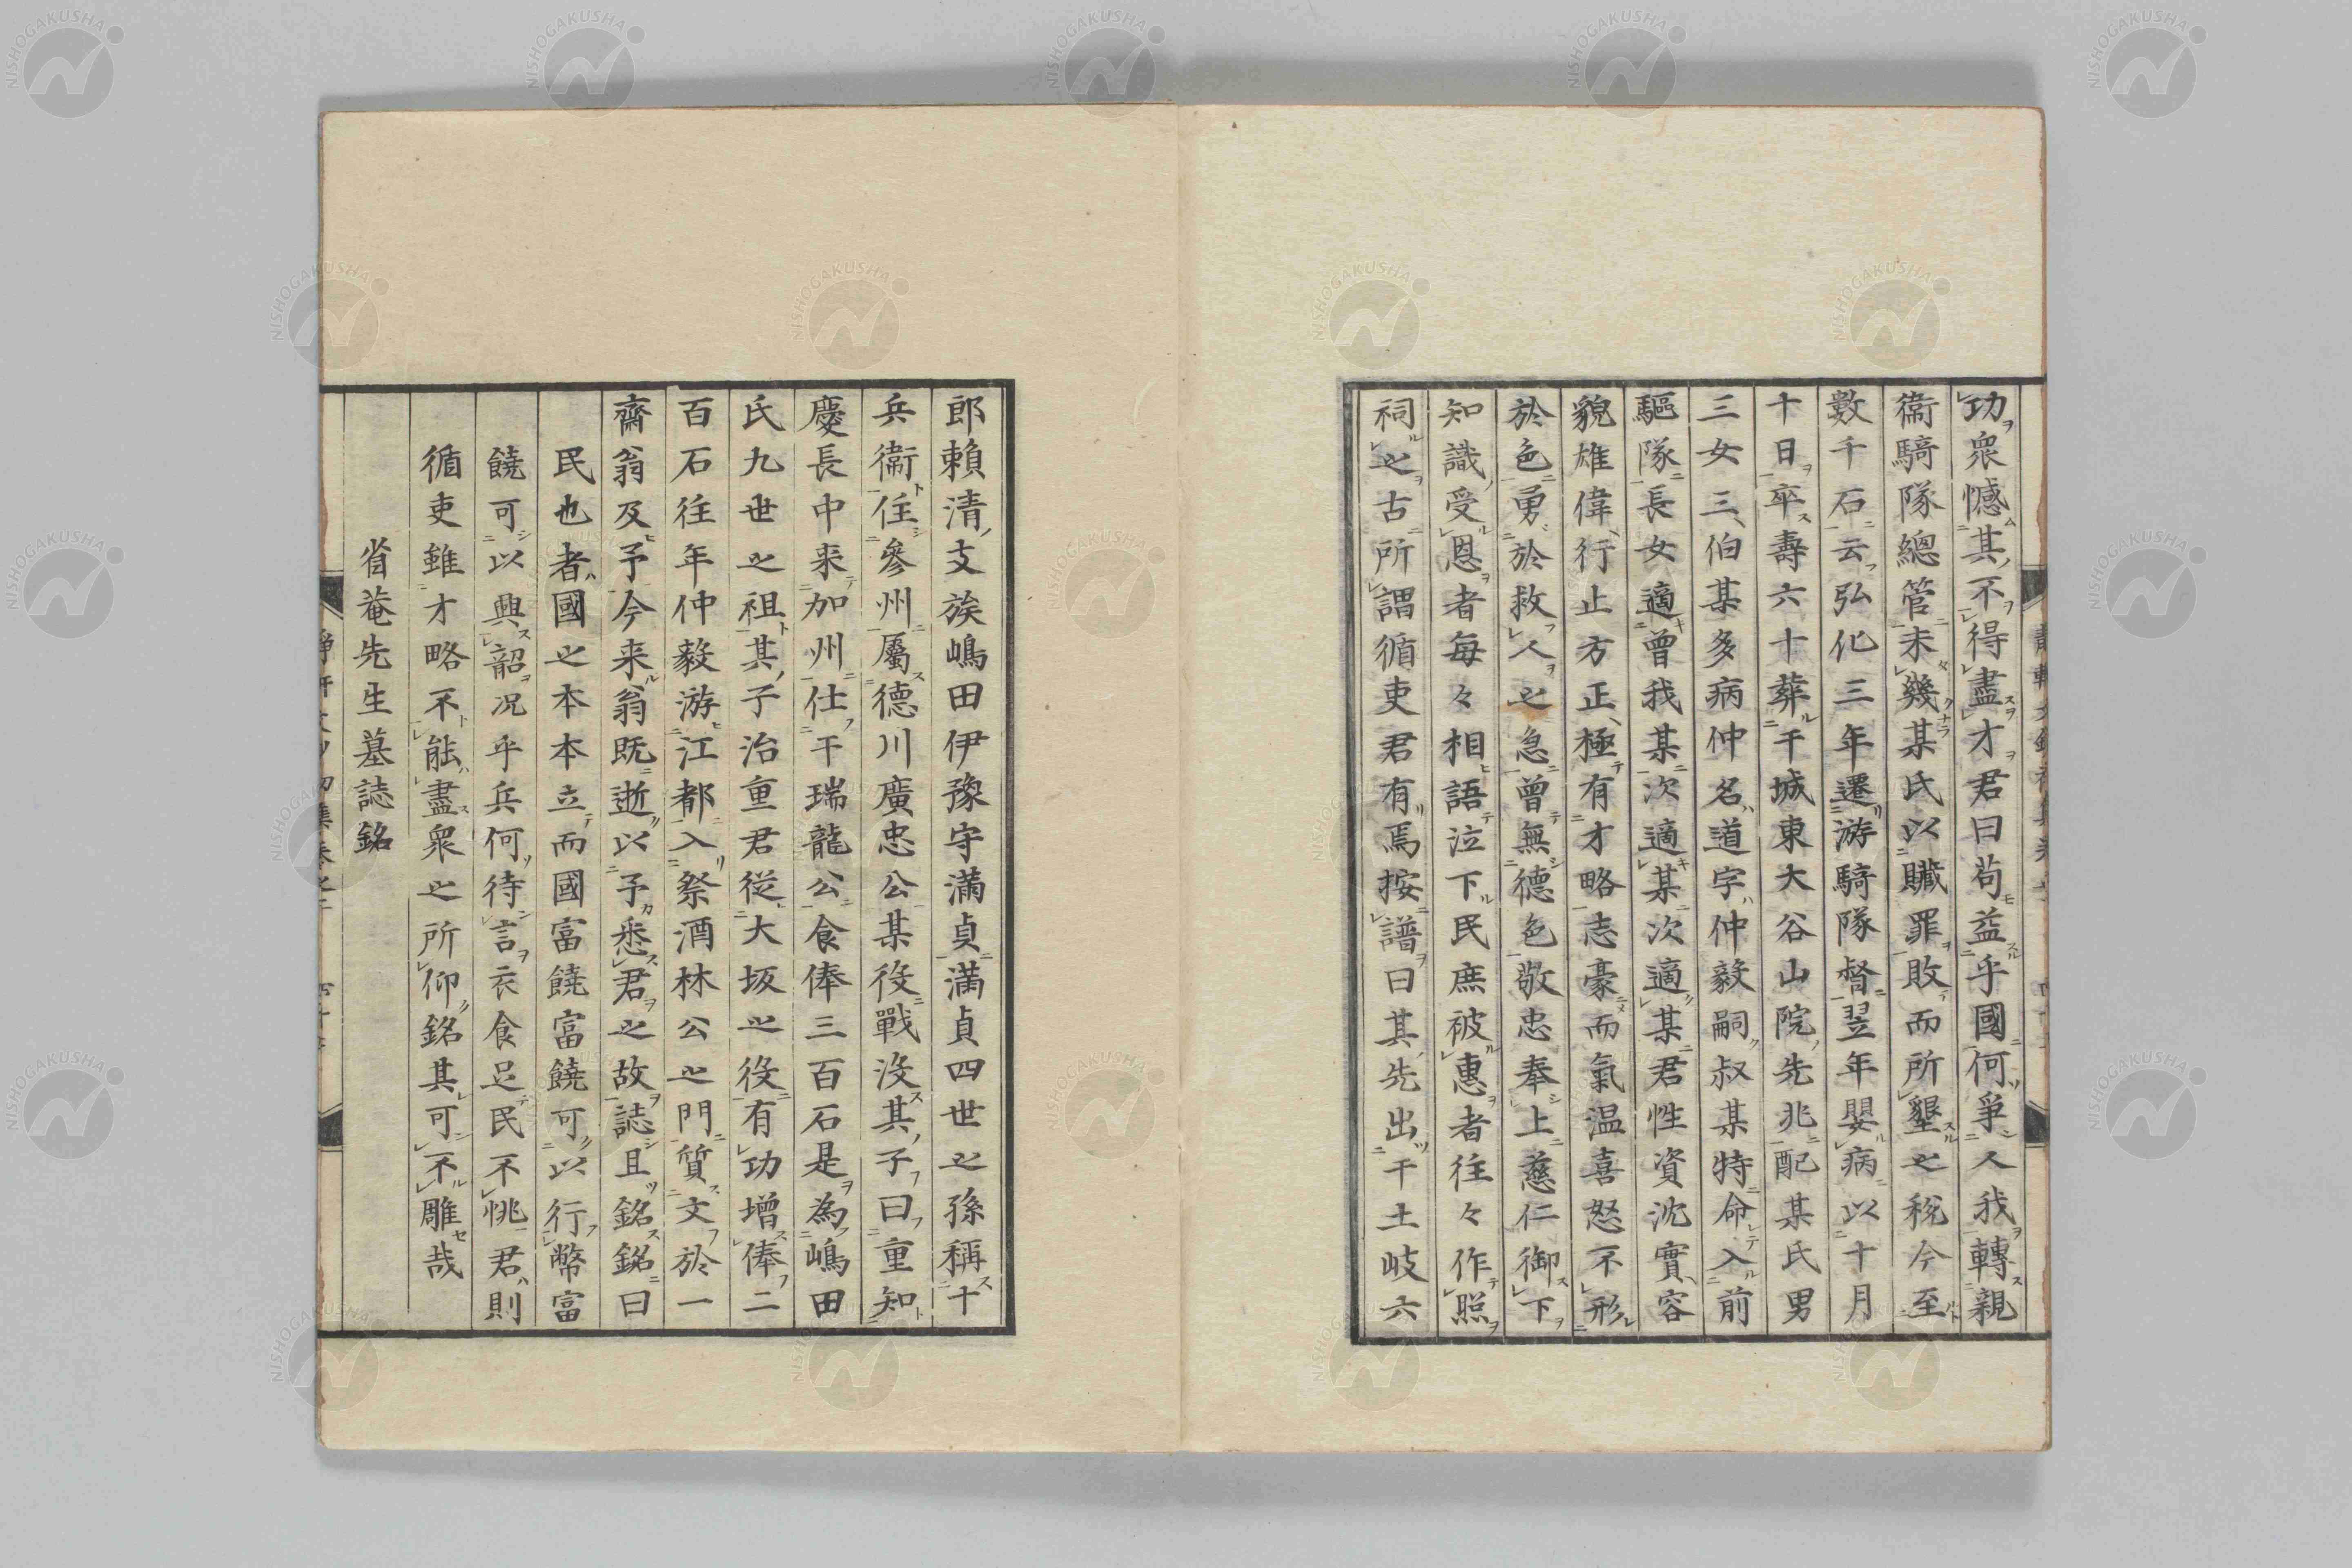 功衆憾其不得盡才君曰苟益乎國何爭人我轉親
衞騎隊總管未幾某氏以贓罪敗而所墾之税今至
數千石云弘化三年還游騎隊督翌年嬰病以十月
十日卒壽六十葬于城東大谷山院先兆配某氏男
三女三伯某多病仲名道字仲毅嗣叔某特命入前
驅隊長女適曾我某次適某次適某君性資沈實容
貌雄偉行止方正極有才略志豪而氣温喜怒不形
於色勇於救人之急曾無德色敬忠奉上慈仁御下
知識受恩者毎々相語泣下民庶被惠者往々作照
祠之古所謂循吏君有焉按譜曰其先出于土岐六
郎頼清支族嶋田伊豫守滿貞滿貞四世之孫稱十
兵衞住參州屬德川廣忠公某役戰沒其子曰重知
慶長中来加州仕于瑞龍公食俸三百石是為嶋田
氏九世之祖其子治重君從大坂之役有功增俸二
百石往年仲毅游江都入祭酒林公之門質文於一
齋翁及予今来翁既逝以予悉君之故誌且銘銘曰
民也者國之本本立而國富饒富饒可以行幣富
饒可以興韶况乎兵何待言衣食足民不恌君則
循吏雖才略不能盡衆之所仰銘其可不雕哉
省菴先生墓誌銘
NISHOGAKUSHA